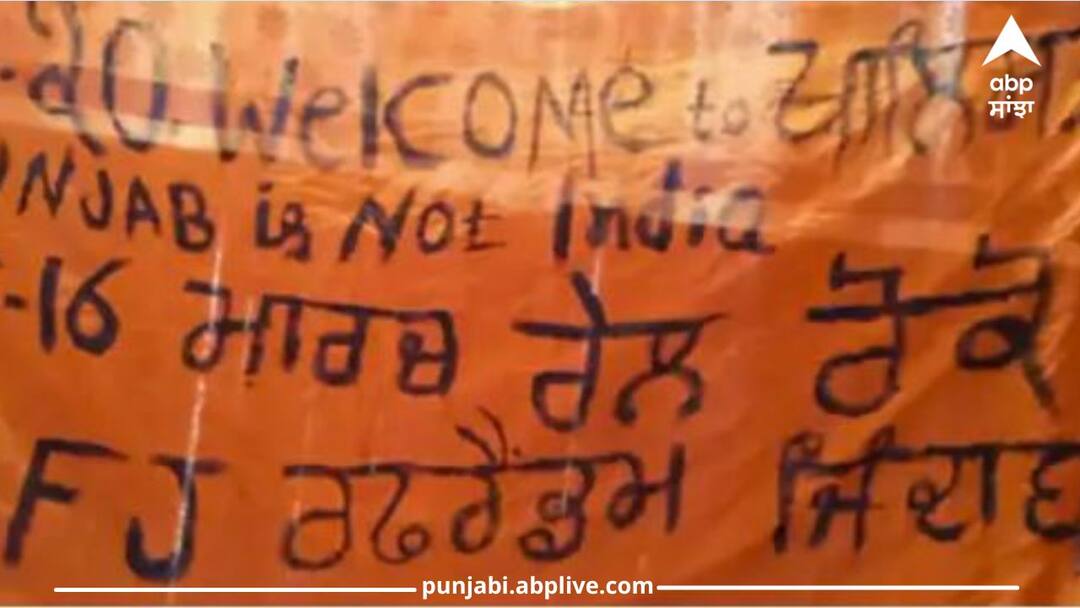 -20 Welcome to ਖਾਲਿਸ
abp
ਸਾਂਝਾ
UNJAB is Not India
-16 ਮਾਰਚ ਰੇਲ ਰੋਕੋ
FJ ਰਫਰੈਂਡਮ ਜਿੰਦਾਬ
punjabi.abplive.com